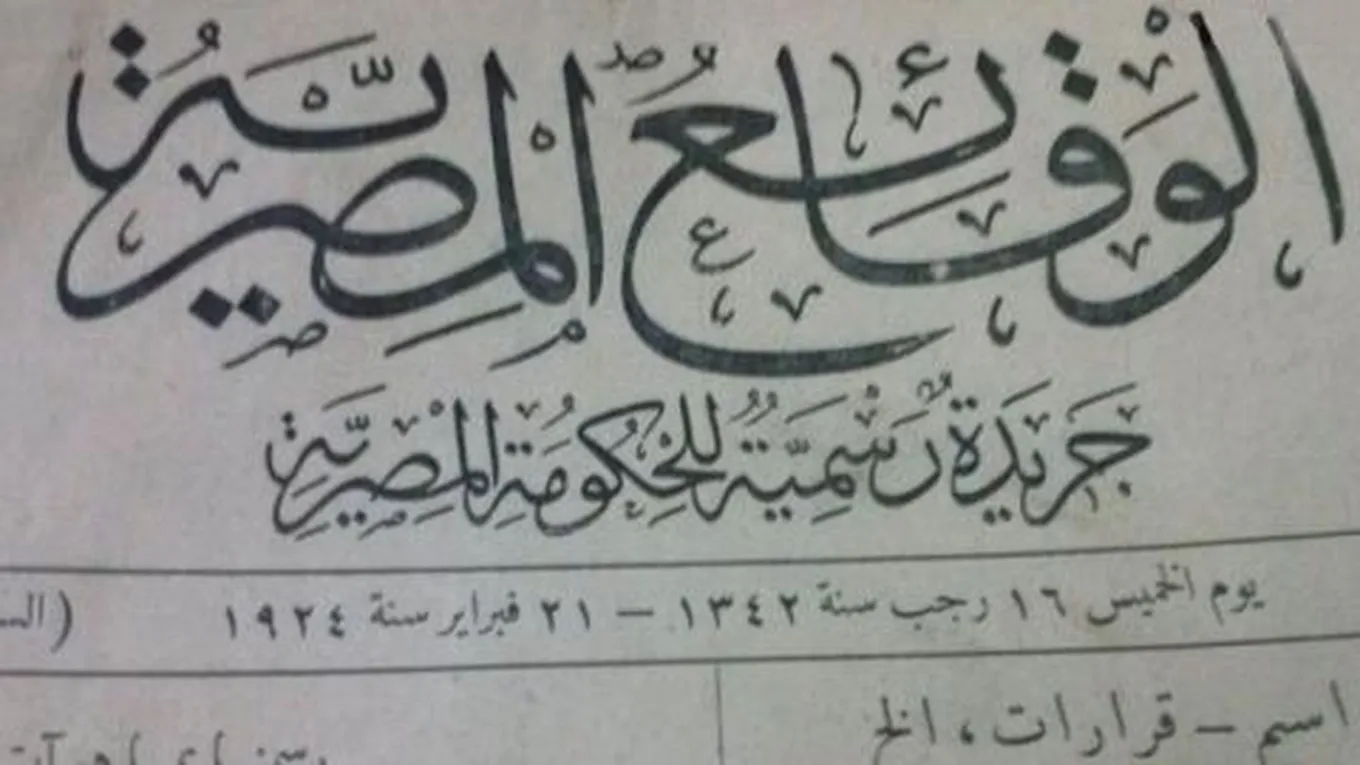 الوَقَائِعُ المِصْرِيَّةُ
جَرِيدَةٌ رَسْمِيَّةٌ لِلْحُكُومَةِ المِصْرِيَّةِ
يوم الخميس ١٦ رجب سنة ١٣٤٢ — ٢١ فبراير سنة ١٩٢٤ (الس
اسم — قرارات ، الخ